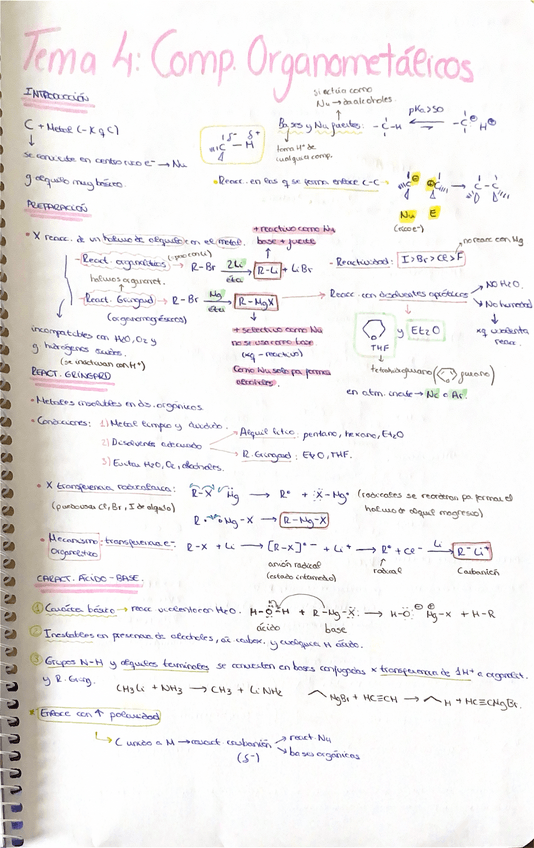 Tema 4: Comp. Organometálicos
INTRODUCCIÓN
C + Metal (-X q C)
se convierte en centro rico e⁻ → Nu
y alquilo muy básico.
δ⁻ δ⁺
C - M
si actúa como
Nu → da alcoholes.
Bases y Nu fuertes: -C-H ⇌ -C⊖ H⊕
pKa>50
toma H⁺ de
cualquier comp.
• Reacc. en las q se forma enlace C-C
C⊖ ⊕C → C-C
Nu E
(rico e⁻)
PREPARACIÓN
• X reacc. de un haluro de alquilo con el metal.
- React. organolíticos (: poco Li)
R-Br 2Li → R-Li + LiBr
éter
+ reactivo como Nu
base + fuerte
haluros organomet.
- React. Gringard → R-Br Mg → R-MgX
éter
(organomagnésicos)
+ selectivo como Nu
no se usa como base
(xq - reactivo)
Como Nu solo pa formar
alcoholes.
- Reactividad: I>Br>Cl>F
no reacc con Mg
Reacc. con disolventes apróticos
NO H₂O
No humedad
xq violenta
reacc.
THF y Et₂O
tetrahidrofurano (furano)
en atm. inerte → N₂ o Ar.
incompatibles con H₂O, O₂ y
y hidrógenos ácidos.
(se inactivan con H⁺)
REACT. GRINGARD
• Metales insolubles en dis. orgánicos
• Condiciones: 1) Metal limpio y dividido.
2) Disolvente adecuado
Alquil litio: pentano, hexano, Et₂O
R. Gringard: Et₂O, THF.
3) Evitar H₂O, O₂, alcoholes.
• X transferencia radicálica:
R-X Mg → R• + :X-Mg• (radicales se reordenan pa formar el
haluro de alquil magnesio)
(pueden usar Cl, Br, I de alquilo)
R• •Mg-X → R-Mg-X
• Mecanismo transferencia e⁻
Organolítico
R-X + Li → [R-X]•⁻ + Li⁺ → R• + Cl⁻ Li → R⁻Li⁺
anión radical
(estado intermedio)
radical
Carbanión
CARACT. ÁCIDO-BASE.
① Carácter básico → reacc violenta con H₂O. H-O-H + R-Mg-X: → H-O:⊖ ⊕Mg-X + H-R
ácido base
② Inestables en presencia de alcoholes, ác carbox. y cualquier H ácido.
③ Grupos N-H y alquinos terminales se convierten en bases conjugadas x transferencia de 1H⁺ a organolit.
y R. Gring.
CH₃Li + NH₃ → CH₃ + LiNH₂
MgBr + HC≡CH → H + HC≡CMgBr.
* Enlace con ↑ polaridad
C unido a M → caract carbanión
(δ⁻)
react. Nu
bases orgánicas